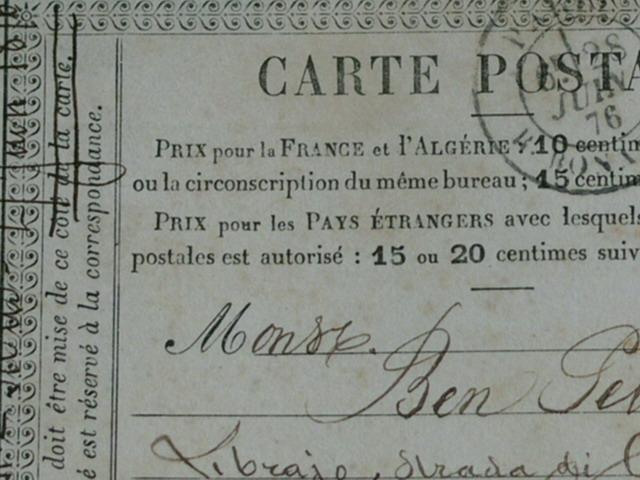 CARTE POSTA
PRIX pour la FRANCE et l'ALGÉRIE : 10 centim
ou la circonscription du même bureau ; 15 centim
PRIX pour les PAYS ÉTRANGERS avec lesquels
postales est autorisé : 15 ou 20 centimes suiv
Monsr.
Ben
Libraio, Strada di
doit être mise de ce coté de la carte.
é est réservé à la correspondance.
28
JUIN
76